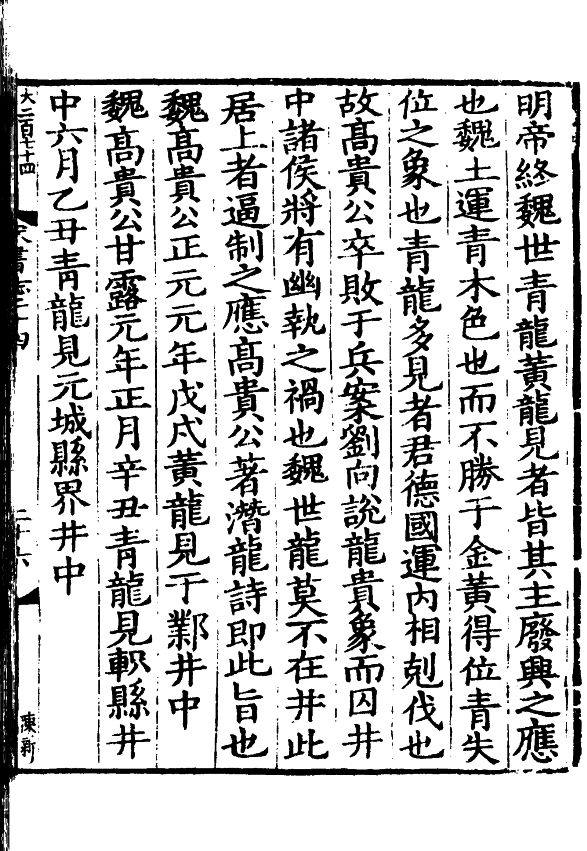 明帝終魏世青龍黃龍見者皆其主廢興之應
也魏土運青木色也而不勝于金黃得位青失
位之象也青龍多見者君德國運內相剋伐也
故髙貴公卒敗于兵案劉向說龍貴象而囚井
中諸侯將有幽執之禍也魏世龍莫不在井此
居上者逼制之應髙貴公著潛龍詩即此旨也
魏髙貴公正元元年戊戌黃龍見于鄴井中
魏髙貴公甘露元年正月辛丑青龍見軹縣井
中六月乙丑青龍見元城縣界井中
大二百七十四
二十六
陳新